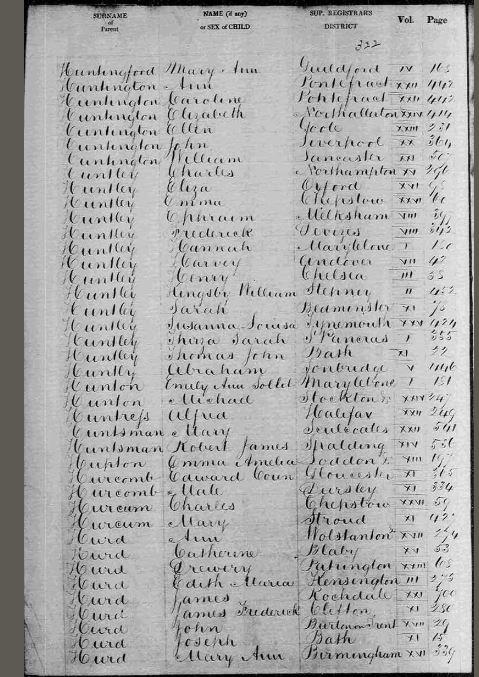 SURNAME of Parent NAME (if any) or SEX of CHILD SUP. REGISTRAR'S DISTRICT Vol. Page
322
Huntingford Mary Ann Guildford IV 163
Huntington Ann Pontefract XXII 442
Huntington Caroline Pontefract XXII 442
Huntington Elizabeth Northallerton XXIV 414
Huntington Ellen Goole XXIII 231
Huntington John Liverpool XX 364
Huntington William Lancaster XXI 307
Huntley Charles Northampton XV 256
Huntley Eliza Oxford XVI 95
Huntley Emma Chepstow XXVI 60
Huntley Ephraim Melksham VIII 397
Huntley Frederick Devizes VIII 342
Huntley Hannah Marylebone I 160
Huntley Harvey Andover VII 42
Huntley Henry Chelsea III 33
Huntley Kingsby William Stepney II 452
Huntley Sarah Bedminster XI 73
Huntley Susanna Louisa Tynemouth XXV 424
Huntley Thirza Sarah St Pancras I 335
Huntley Thomas John Bath XI 22
Huntly Abraham Tonbridge V 446
Hunton Emily Ann Marylebone I 181
Hunton Michael Stockton XXIV 247
Huntress Alfred Halifax XXII 249
Huntsman Mary Sculcoates XXII 541
Huntsman Robert James Spalding XIV 536
Hupton Emma Amelia Loddon XIII 197
Hurcomb Edward Gloucester XI 363
Hurcomb Male Dursley XI 334
Hurcum Charles Chepstow XXVI 59
Hurcum Mary Stroud XI 427
Hurd Ann Wolstanton XVII 274
Hurd Catherine Blaby XV 33
Hurd Drewery Patrington XXIII 68
Hurd Edith Maria Kensington III 275
Hurd James Rochdale XXI 500
Hurd James Frederick Clifton XI 250
Hurd John Burton on Trent XVII 29
Hurd Joseph Bath XI 15
Hurd Mary Ann Birmingham XVI 339